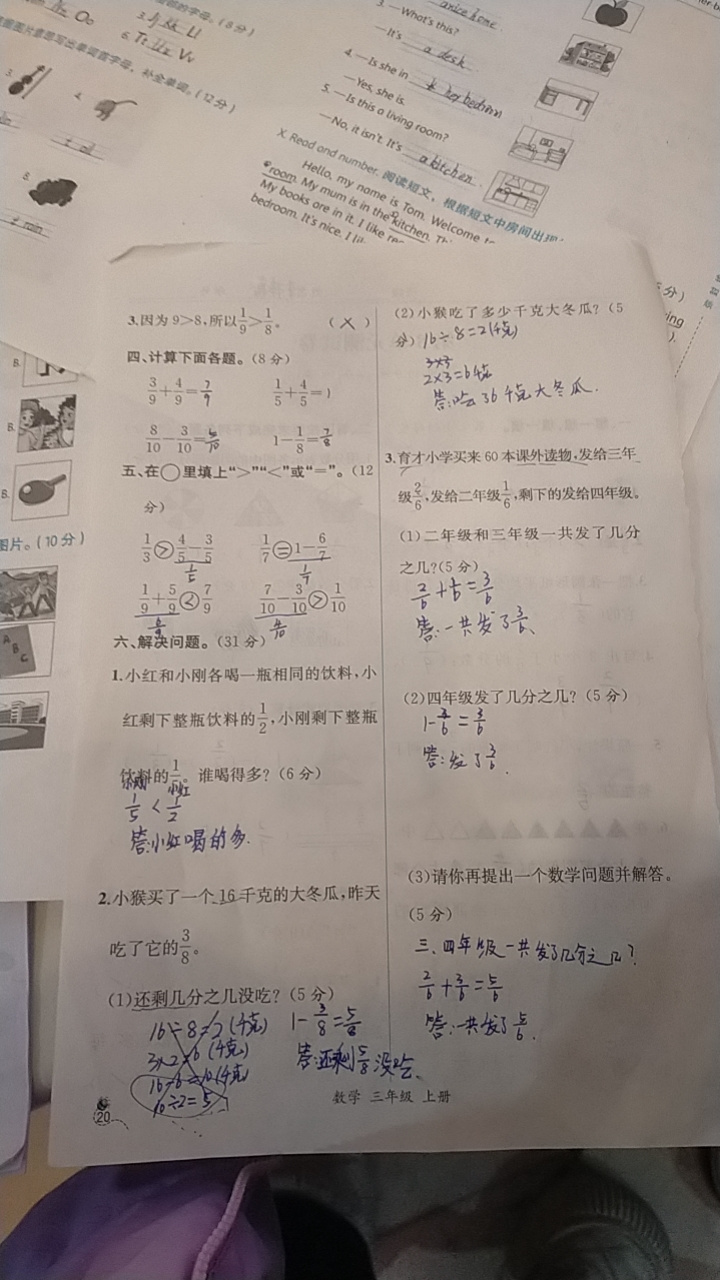 的字母。(8分)
Oo
Ll
Vv
意思写出单词首字母，补全单词。(12分)
3.
4.
5.
3. —What's this?
—It's a desk
4. —Is she in her bedroom
—Yes, she is.
5. —Is this a living room?
—No, it isn't. It's a kitchen.
X. Read and number. 阅读短文，根据短文中房间出现
Hello, my name is Tom. Welcome to
room. My mum is in the kitchen. Th
My books are in it. I like re
bedroom. It's nice. I li
B.
B.
B.
图片。(10分)
A B C
3.因为9>8,所以1/9>1/8。 (×)
四、计算下面各题。(8分)
3/9+4/9=7/9 1/5+4/5=1
8/10-3/10=5/10 1-1/8=7/8
五、在○里填上“>”“<”或“=”。(12
分)
1/3>4/5-3/5 1/7=1-6/7
1/5 1/7
1/9+5/9<7/9 7/10-3/10>1/10
6/9 4/10
六、解决问题。(31分)
1.小红和小刚各喝一瓶相同的饮料,小
红剩下整瓶饮料的1/2,小刚剩下整瓶
饮料的1/5。谁喝得多?(6分)
小刚 小红
1/5<1/2
答:小红喝的多.
2.小猴买了一个16千克的大冬瓜,昨天
吃了它的3/8。
(1)还剩几分之几没吃?(5分)
16÷8=2(千克)
3×2=6(千克)
16-6=10(千克)
10÷2=5
1-3/8=5/8
答:还剩5/8没吃.
20
(2)小猴吃了多少千克大冬瓜?(5
分)16÷8=2(千克)
2×3=6千克
答:吃了6千克大冬瓜.
3.育才小学买来60本课外读物,发给三年
级2/6,发给二年级1/6,剩下的发给四年级。
(1)二年级和三年级一共发了几分
之几?(5分)
2/6+1/6=3/6
答:一共发了3/6.
(2)四年级发了几分之几?(5分)
1-3/6=3/6
答:发了3/6.
(3)请你再提出一个数学问题并解答。
(5分)
三、四年级一共发了几分之几?
2/6+3/6=5/6
答:一共发了5/6.
数学 三年级 上册